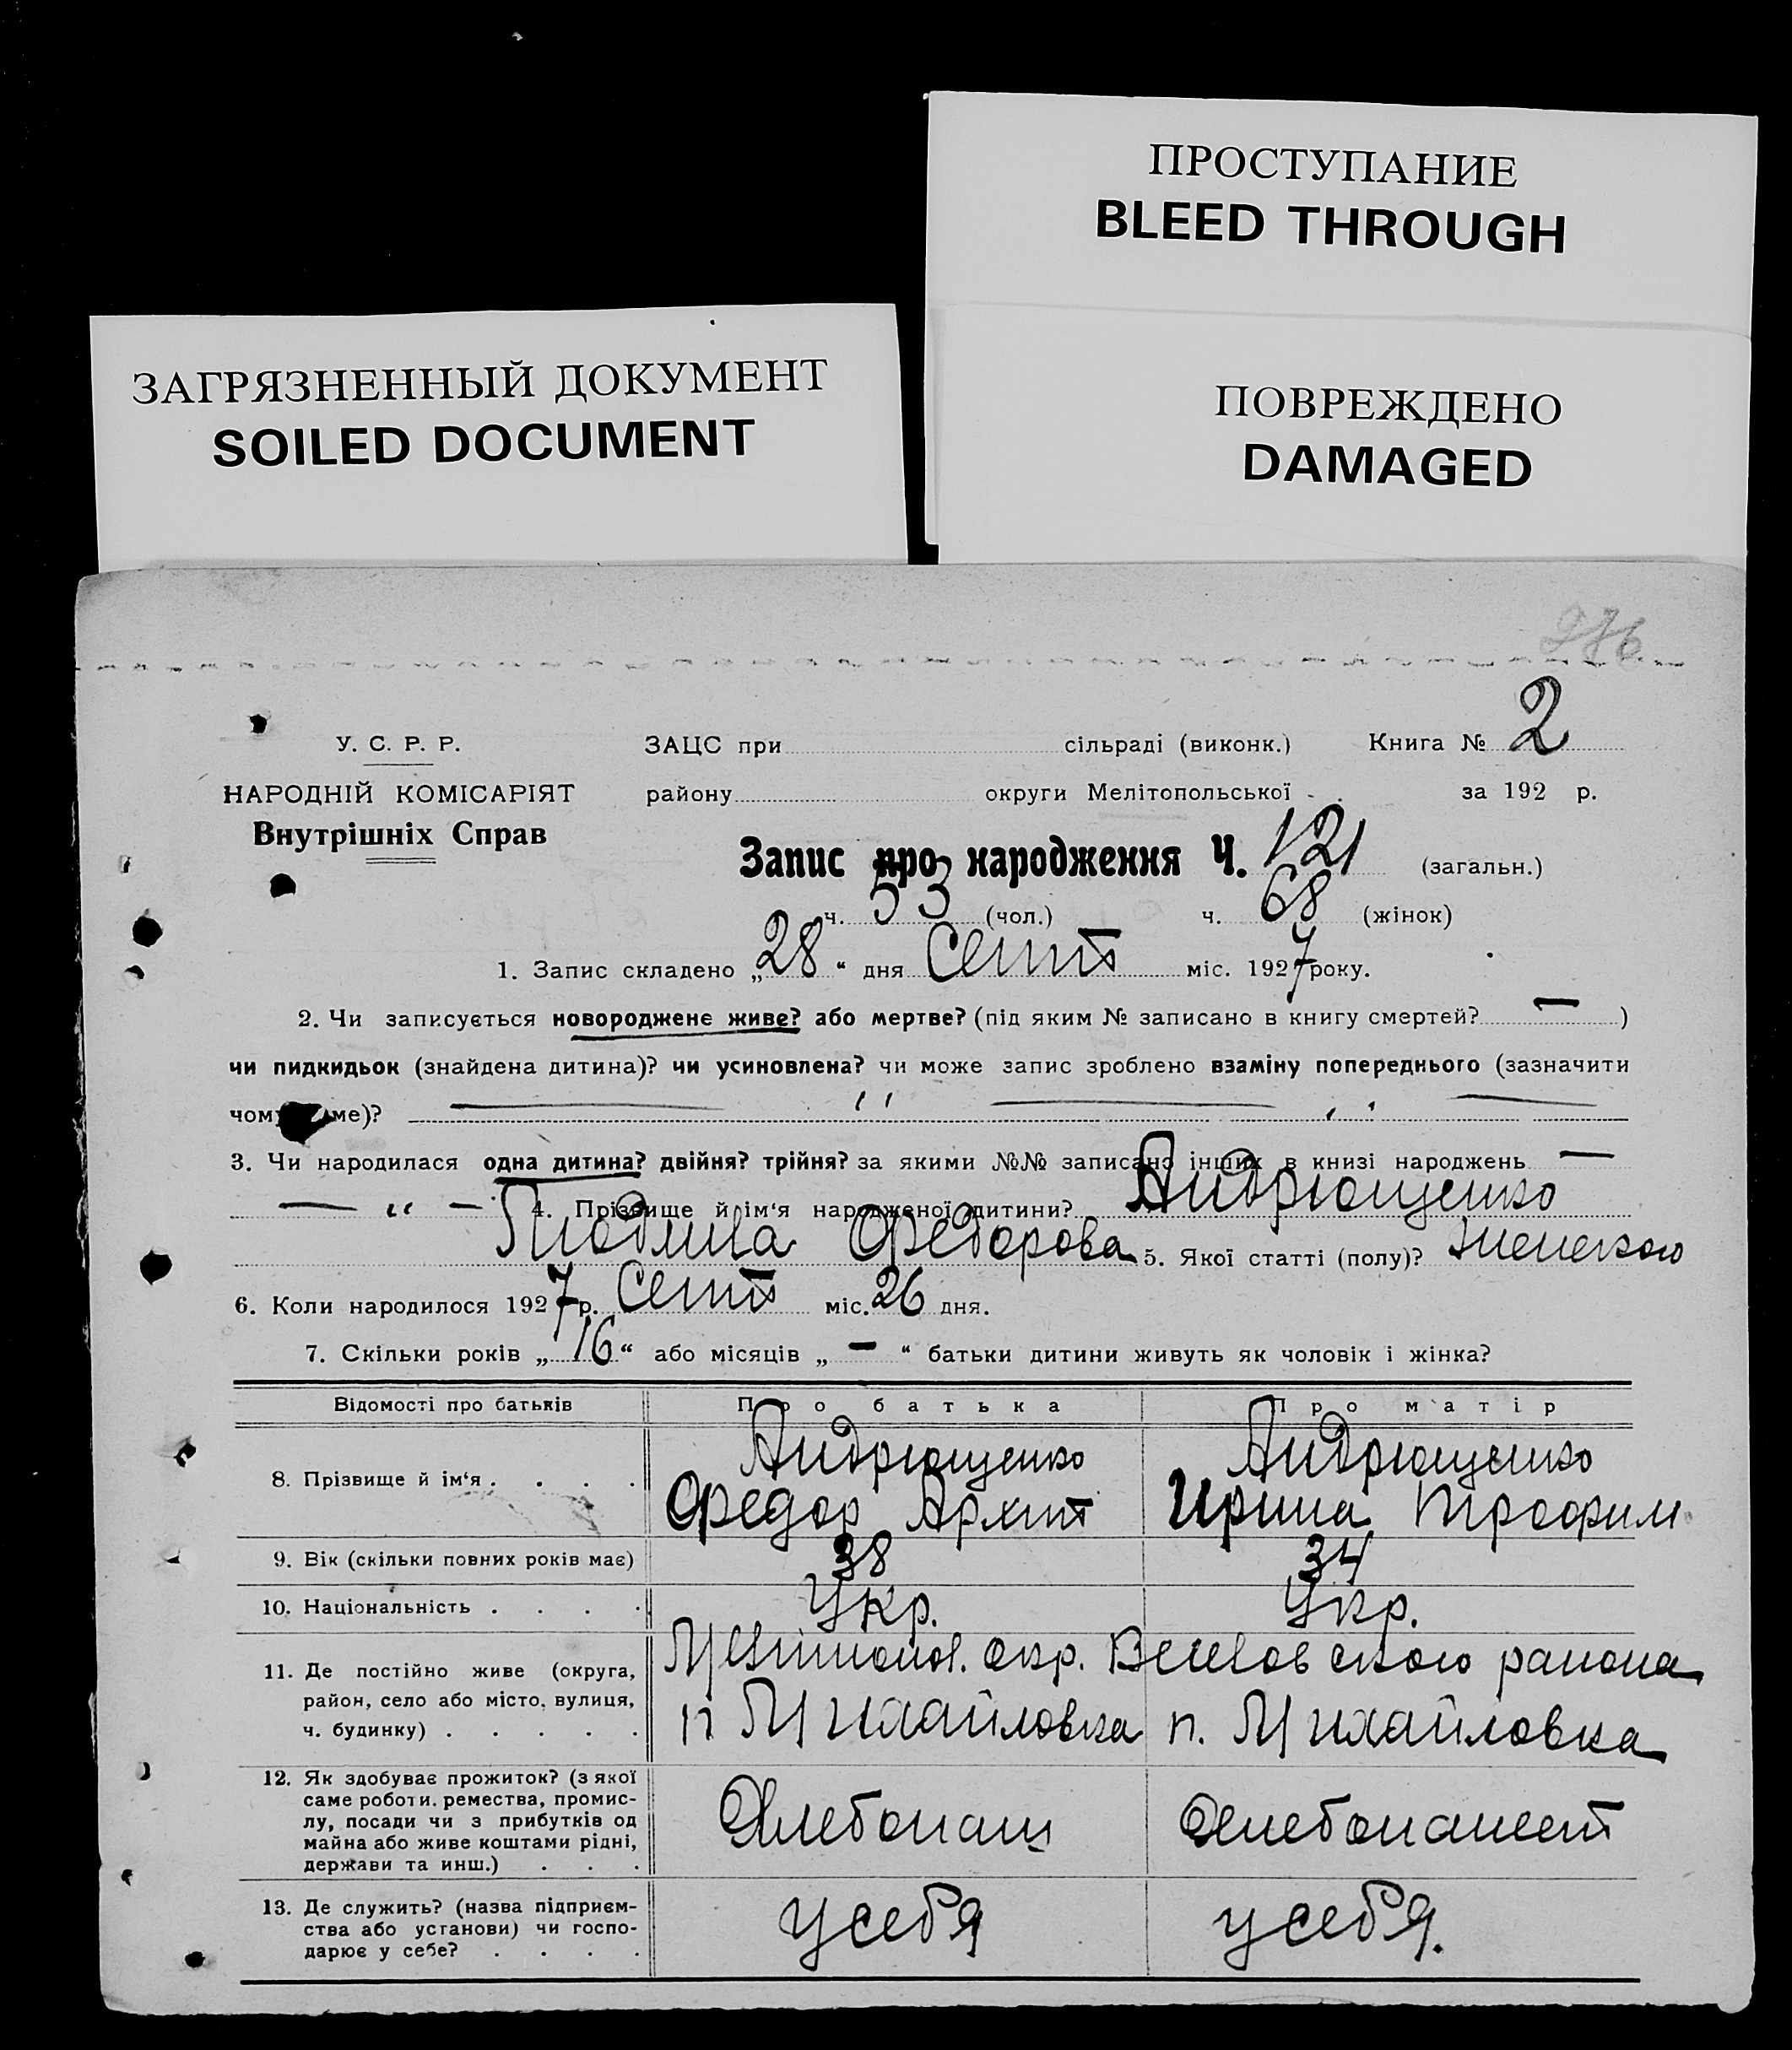 ПРОСТУПАНИЕ
BLEED THROUGH
ЗАГРЯЗНЕННЫЙ ДОКУМЕНТ
SOILED DOCUMENT
ПОВРЕЖДЕНО
DAMAGED
276
У. С. Р. Р. ЗАЦС при сільраді (виконк.) Книга № 2
НАРОДНІЙ КОМІСАРІЯТ району округи Мелітопольської за 192 р.
Внутрішніх Справ
Запис про народження Ч. 121 (загальн.)
ч. 53 (чол.) ч. 68 (жінок)
1. Запис складено „28“ дня Сент міс. 1927 року.
2. Чи записується новороджене живе? або мертве? (під яким № записано в книгу смертей? — )
чи пидкидьок (знайдена дитина)? чи усиновлена? чи може запис зроблено взаміну попереднього (зазначити
чому ме)? — " — " —
3. Чи народилася одна дитина? двійня? трійня? за якими №№ записано інших в книзі народжень —
— " — 4. Прізвище й ім‘я народженої дитини? Андрющенко
Людмила Федорова 5. Якої статті (полу)? женского
6. Коли народилося 1927 р. Сент міс. 26 дня.
7. Скільки років „16“ або місяців „ — “ батьки дитини живуть як чоловік і жінка?
Відомості про батьків Про батька Про матір
8. Прізвище й ім‘я . . . . Андрющенко Андрющенко
Федор Архип Ирина Трофим
9. Вік (скільки повних років має) 38 34
10. Національність . . . . Укр. Укр.
11. Де постійно живе (округа, Мелитопол. окр. Веселовского района
район, село або місто, вулиця,
ч. будинку) . . . . . п Михайловка п. Михайловка
12. Як здобуває прожиток? (з якої
саме роботи. ремества, промис-
лу, посади чи з прибутків од Хлебопаш Хлебопашест
майна або живе коштами рідні,
держави та инш.) . . .
13. Де служить? (назва підприєм-
ства або установи) чи госпо- у себя у себя.
дарює у себе? . . . .